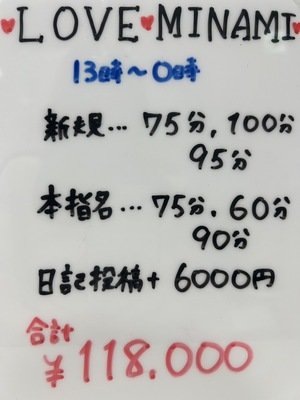 ♥LOVE♥MINAMI♥
13時～0時
新規… 75分, 100分
95分
本指名… 75分, 60分
90分
日記投稿+ 6000円
合計
¥118.000